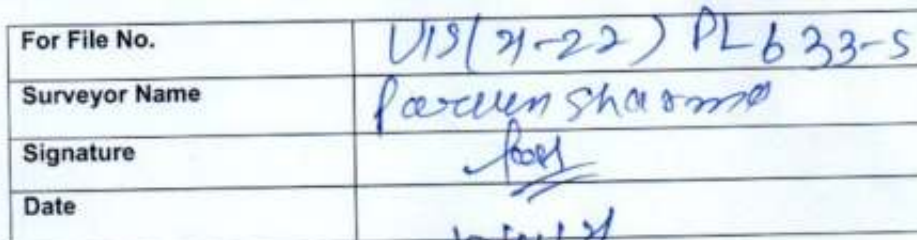 For File No. VIS(21-22) PL633-S
Surveyor Name Parveen Sharma
Signature
Date